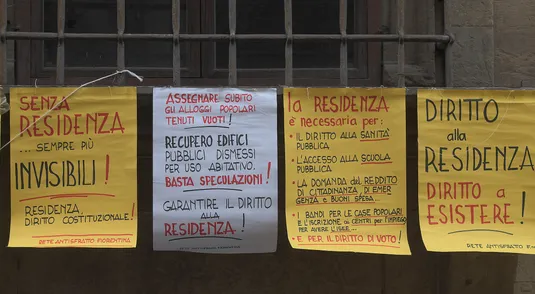 SENZA
RESIDENZA
... SEMPRE PIÙ
INVISIBILI !
RESIDENZA
DIRITTO COSTITUZIONALE !
RETE ANTISFRATTO FIORENTINA
ASSEGNARE SUBITO
GLI ALLOGGI POPOLARI
TENUTI VUOTI !
RECUPERO EDIFICI
PUBBLICI DISMESSI
PER USO ABITATIVO.
BASTA SPECULAZIONI !
GARANTIRE IL DIRITTO
ALLA
RESIDENZA !
RETE ANTISFRATTO FIORENTINA
la RESIDENZA
è necessaria per:
• IL DIRITTO ALLA SANITÀ
PUBBLICA
• L'ACCESSO ALLA SCUOLA
PUBBLICA
• LA DOMANDA del REDDITO
DI CITTADINANZA, DI EMER
GENZA e BUONI SPESA...
• I BANDI PER LE CASE POPOLARI
E L'ISCRIZIONE AI CENTRI PER L'IMPIEGO
PER AVERE L'ISEE...
• E PER IL DIRITTO DI VOTO !
DIRITTO
alla
RESIDENZA
DIRITTO a
ESISTERE !
RETE ANTISFRATTO